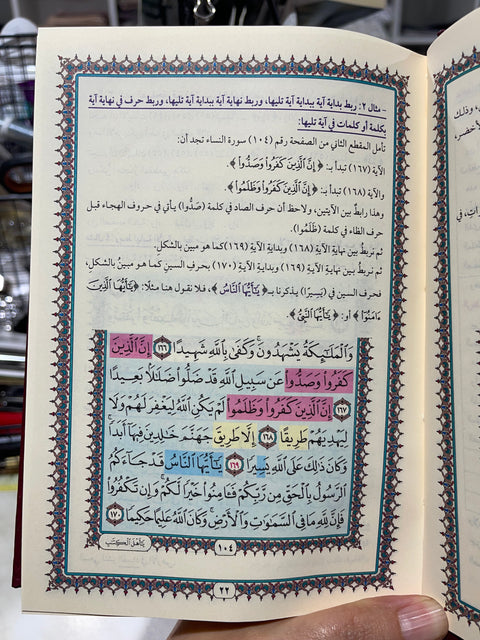 - مثال ٢: ربط بداية آية ببداية آية تليها، وربط نهاية آية ببداية آية تليها، وربط حرف في نهاية آية
بكلمة أو كلمات في آية تليها:
تأمل المقطع الثاني من الصفحة رقم (١٠٤) سورة النساء تجد أن:
الآية (١٦٧) تبدأ بـ: ﴿ إِنَّ ٱلَّذِينَ كَفَرُواْ وَصَدُّواْ ﴾.
والآية (١٦٨) تبدأ بـ: ﴿ إِنَّ ٱلَّذِينَ كَفَرُواْ وَظَلَمُواْ ﴾.
وهذا رابط بين الآيتين، ولاحظ أن حرف الصاد في كلمة (صَدُّوا) يأتي في حروف الهجاء قبل
حرف الظاء في كلمة (ظَلَمُوا).
ثم نربط بين نهاية الآية (١٦٨) وبداية الآية (١٦٩) كما هو مبين بالشكل.
ثم نربط بين نهاية الآية (١٦٩) وبداية الآية (١٧٠) بحرف السين كما هو مبين بالشكل،
فحرف السين في (يَسِيرًا) يذكرنا بـ ﴿ يَٰٓأَيُّهَا ٱلنَّاسُ ﴾، فلا نقول هنا مثلًا: ﴿ يَٰٓأَيُّهَا ٱلَّذِينَ
ءَامَنُواْ ﴾ أو: ﴿ يَٰٓأَيُّهَا ٱلنَّبِيُّ ﴾.
وَٱلْمَلَٰٓئِكَةُ يَشْهَدُونَۚ وَكَفَىٰ بِٱللَّهِ شَهِيدًا ١٦٦ إِنَّ ٱلَّذِينَ
كَفَرُواْ وَصَدُّواْ عَن سَبِيلِ ٱللَّهِ قَدْ ضَلُّواْ ضَلَٰلَۢا بَعِيدًا
١٦٧ إِنَّ ٱلَّذِينَ كَفَرُواْ وَظَلَمُواْ لَمْ يَكُنِ ٱللَّهُ لِيَغْفِرَ لَهُمْ وَلَا
لِيَهْدِيَهُمْ طَرِيقًا ١٦٨ إِلَّا طَرِيقَ جَهَنَّمَ خَٰلِدِينَ فِيهَآ أَبَدًاۚ
وَكَانَ ذَٰلِكَ عَلَى ٱللَّهِ يَسِيرًا ١٦٩ يَٰٓأَيُّهَا ٱلنَّاسُ قَدْ جَآءَكُمُ
ٱلرَّسُولُ بِٱلْحَقِّ مِن رَّبِّكُمْ فَـَٔامِنُواْ خَيْرًا لَّكُمْۚ وَإِن تَكْفُرُواْ
فَإِنَّ لِلَّهِ مَا فِي ٱلسَّمَٰوَٰتِ وَٱلْأَرْضِۚ وَكَانَ ٱللَّهُ عَلِيمًا حَكِيمًا ١٧٠
يَٰٓأَهْلَ ٱلْكِتَٰبِ
١٠٤
٢٢